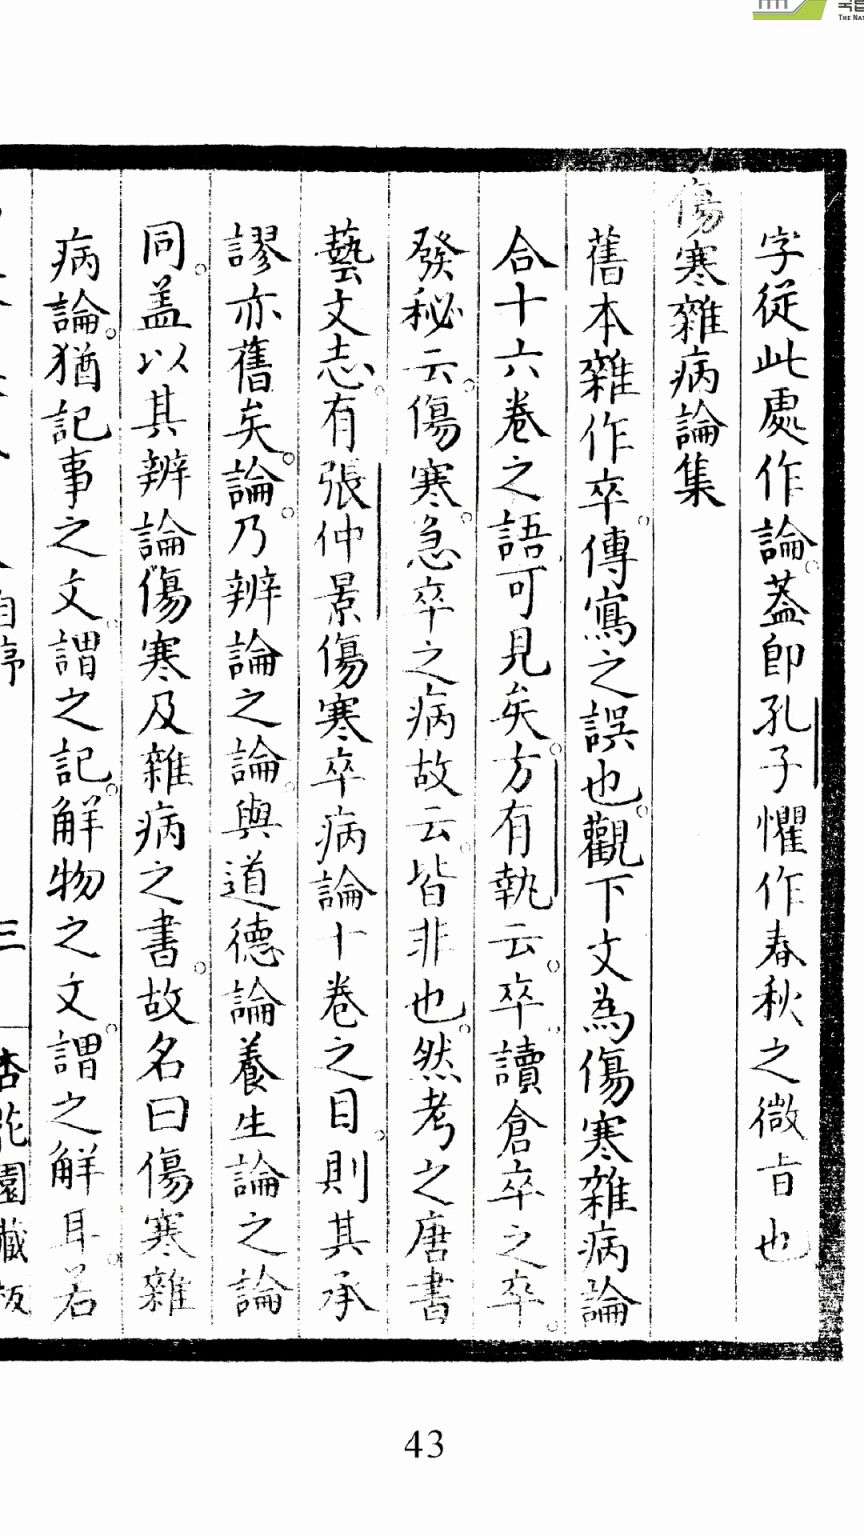 字從此處作論。蓋卽孔子懼作春秋之微旨也
傷寒雜病論集
舊本雜作卒。傳寫之誤也。觀下文為傷寒雜病論
合十六卷之語。可見矣。方有執云。卒讀倉卒之卒。
發秘云。傷寒。急卒之病故云。皆非也。然考之唐書
藝文志。有張仲景傷寒卒病論十卷之目。則其承
謬亦舊矣。論。乃辨論之論。與道德論養生論之論
同。盖以其辨論傷寒及雜病之書。故名曰傷寒雜
病論。猶記事之文。謂之記。解物之文。謂之解耳。若
自序
三
杏花園藏板
43
국립
THE NAT